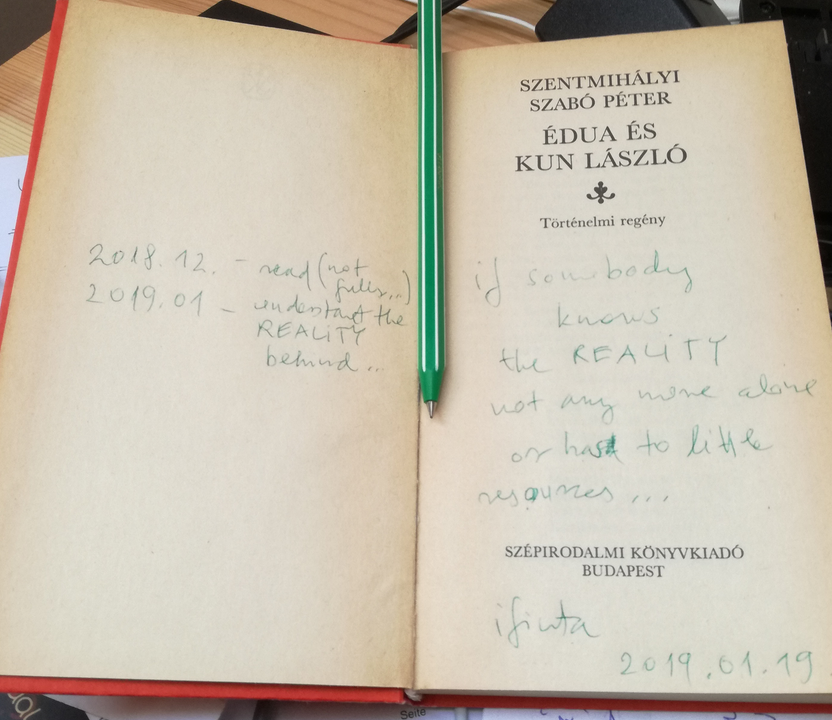 2018.12. - read (not
fully...)
2019.01 - understand the
REALiTY
behind...
SZENTMIHÁLYI
SZABÓ PÉTER
ÉDUA ÉS
KUN LÁSZLÓ
Történelmi regény
if somebody
knows
the REALiTY
not any more alone
or has to little
resources ...
SZÉPIRODALMI KÖNYVKIADÓ
BUDAPEST
2019.01.19
Seite